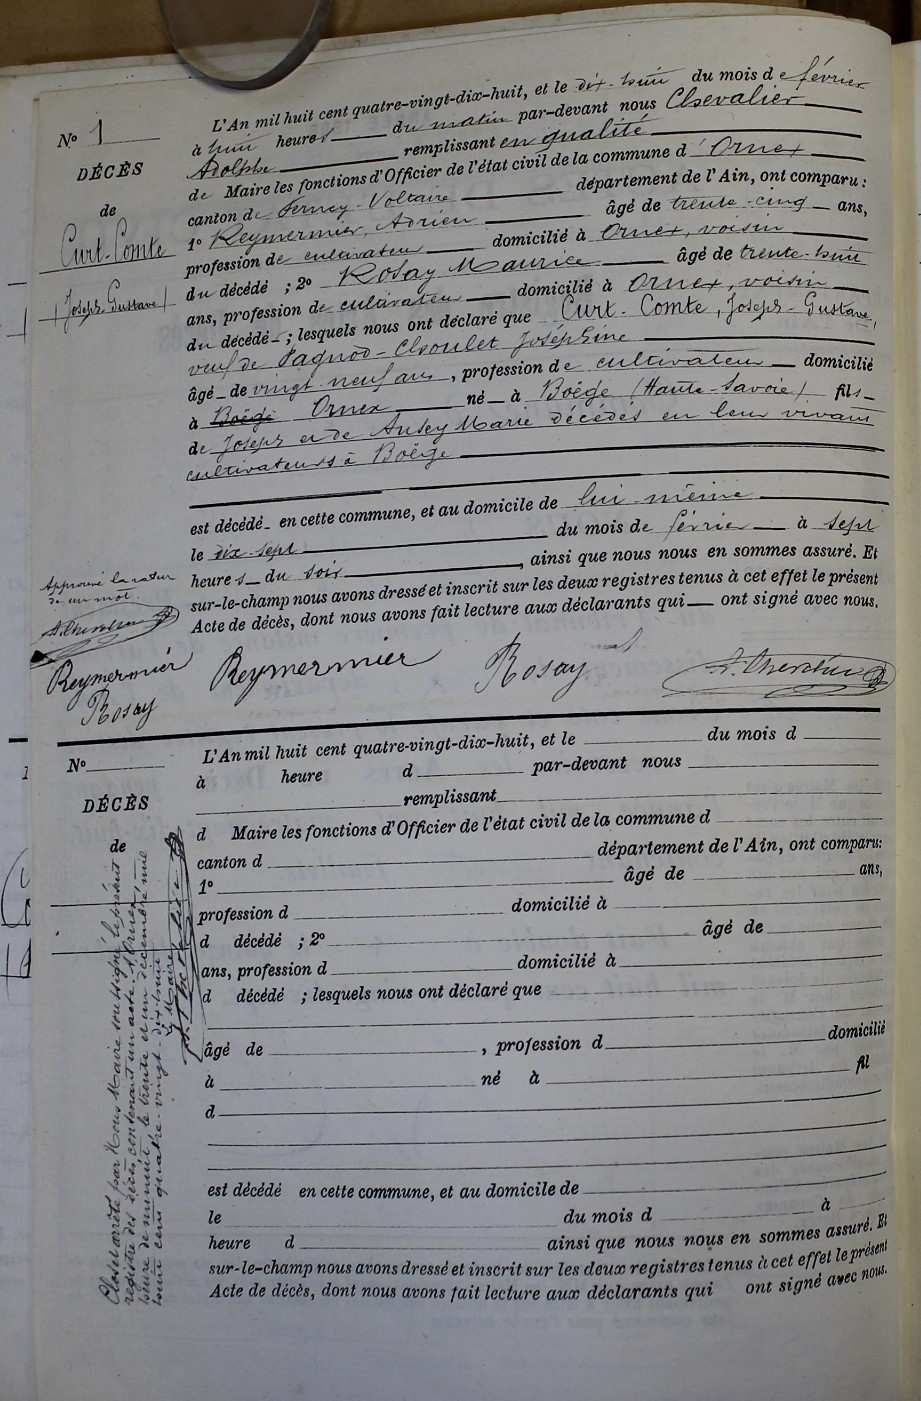 N° 1
DÉCÈS
de
Curt-Comte
Joseph Gustave
L'An mil huit cent quatre-vingt-dix-huit, et le dix-huit du mois de février
à huit heures du matin par-devant nous Chevalier
Adolphe remplissant en qualité
de Maire les fonctions d'Officier de l'état civil de la commune d'Ornex
canton de Ferney-Voltaire département de l'Ain, ont comparu :
1° Reymermier, Adrien âgé de trente-cinq ans,
profession de cultivateur domicilié à Ornex, voisin
du décédé ; 2° Rosay Maurice âgé de trente-huit
ans, profession de cultivateur domicilié à Ornex, voisin
du décédé ; lesquels nous ont déclaré que Curt-Comte, Joseph-Gustave,
veuf de Pagnod-Choulet Joséphine
âgé de vingt neuf ans, profession de cultivateur domicilié
à Boëge Ornex né à Boëge (Haute-Savoie) fils
de Joseph et de Ansey Marie décédés en leur vivant
cultivateurs à Boëge
est décédé en cette commune, et au domicile de lui-même
le dix-sept du mois de février à sept
heures du soir, ainsi que nous nous en sommes assuré. Et
sur-le-champ nous avons dressé et inscrit sur les deux registres tenus à cet effet le présent
Acte de décès, dont nous avons fait lecture aux déclarants qui ont signé avec nous.
Approuvé la rature
de un mot.
A. Chevalier
Reymermier
Rosay
Reymermier Rosay A. Chevalier
N°
DÉCÈS
de
L'An mil huit cent quatre-vingt-dix-huit, et le du mois d
à heure d par-devant nous
remplissant
d Maire les fonctions d'Officier de l'état civil de la commune d
canton d département de l'Ain, ont comparu:
1° âgé de ans,
profession d domicilié à
d décédé ; 2° âgé de
ans, profession d domicilié à
d décédé ; lesquels nous ont déclaré que
âgé de , profession d domicilié
à né à fil
d
est décédé en cette commune, et au domicile de
le du mois d à
heure d ainsi que nous nous en sommes assuré. Et
sur-le-champ nous avons dressé et inscrit sur les deux registres tenus à cet effet le présent
Acte de décès, dont nous avons fait lecture aux déclarants qui ont signé avec nous.
Clos et arrêté par Nous Maire soussigné le présent
registre des décès contenant un acte. A Ornex
heure de minuit le trente et un décembre mil
huit cent quatre-vingt-dix-huit
Le Maire
A. Chevalier